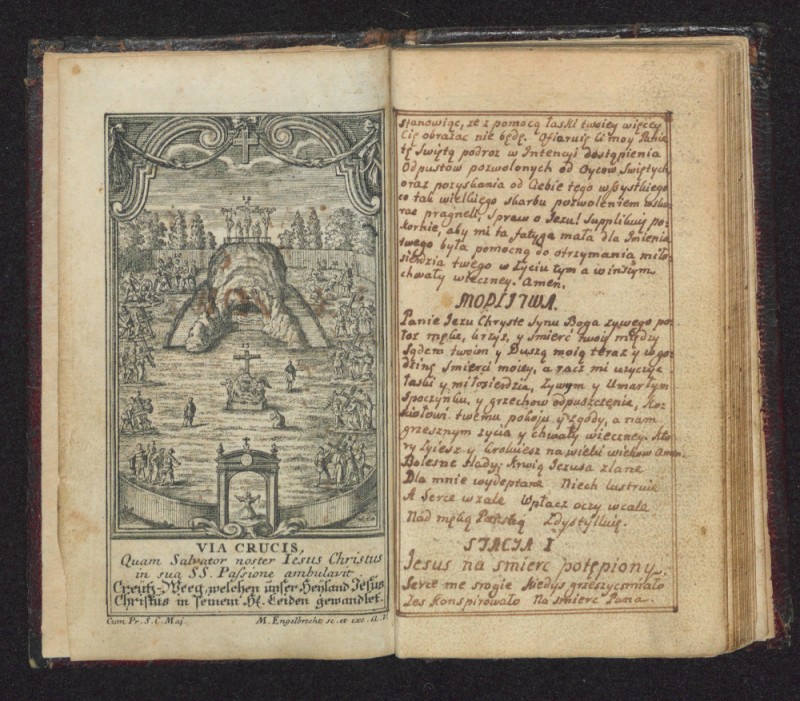 VIA CRUCIS,
Quam Salvator noster Iesus Christus
in sua SS. Passione ambulavit.
Creütz-Weeg, welchen unser Heyland Jesus
Christus in seinem Hl. Leiden gewandlet.
Cum Pr. S. C. Maj. M. Engelbrecht sc. et exc. A. V.
stanowiąc, że z pomocą łaski twoiey więcey
Cię obrażać nie będę. Ofiaruię Ci moy Panie
tę Swiętą podroż w Intencyi dostąpienia
Odpustow pozwolonych od Oycow Swiętych
oraz pozyskania od Ciebie tego wszystkiego
co tak wielkiego skarbu pozwoleniem
pragneli, Spraw o Jezu! Supplikuię po-
kornie, aby mi ta fatyga mała dla Imienia
twego była pomocną do otrzymania miło-
sierdzia twego w życiu tym a w inszym
chwały wieczney. Amen.
MODLITWA.
Panie Jezu Chryste Synu Boga żywego po-
łoż mękę, krzyż, y śmierć twoię między
Sądem twoim y Duszą moią teraz y w go-
dzinę Smierci moiey, a racz mi użyczyć
łaski y miłosierdzia, Żywym y Umarłym
Spoczynku, y grzechow odpuszczenie, Koś-
ciołowi twemu pokoju y zgody, a nam
grzesznym życia y chwały wieczney. Kto-
ry żyiesz y Kroluiesz na wieki wiekow Amen.
Bolesne ślady; Krwią Jezusa zlane
Dla mnie wydeptane Niech lustruię
A Serce w żale Wpłacz oczy wcale
Nad męką Pańską Zdystylluię.
STACYA I
Jezus na śmierć potępiony.
Serce me srogie Kiedyś grzeszyć śmiało
Żeś Konspirowało Na śmierć Pana.